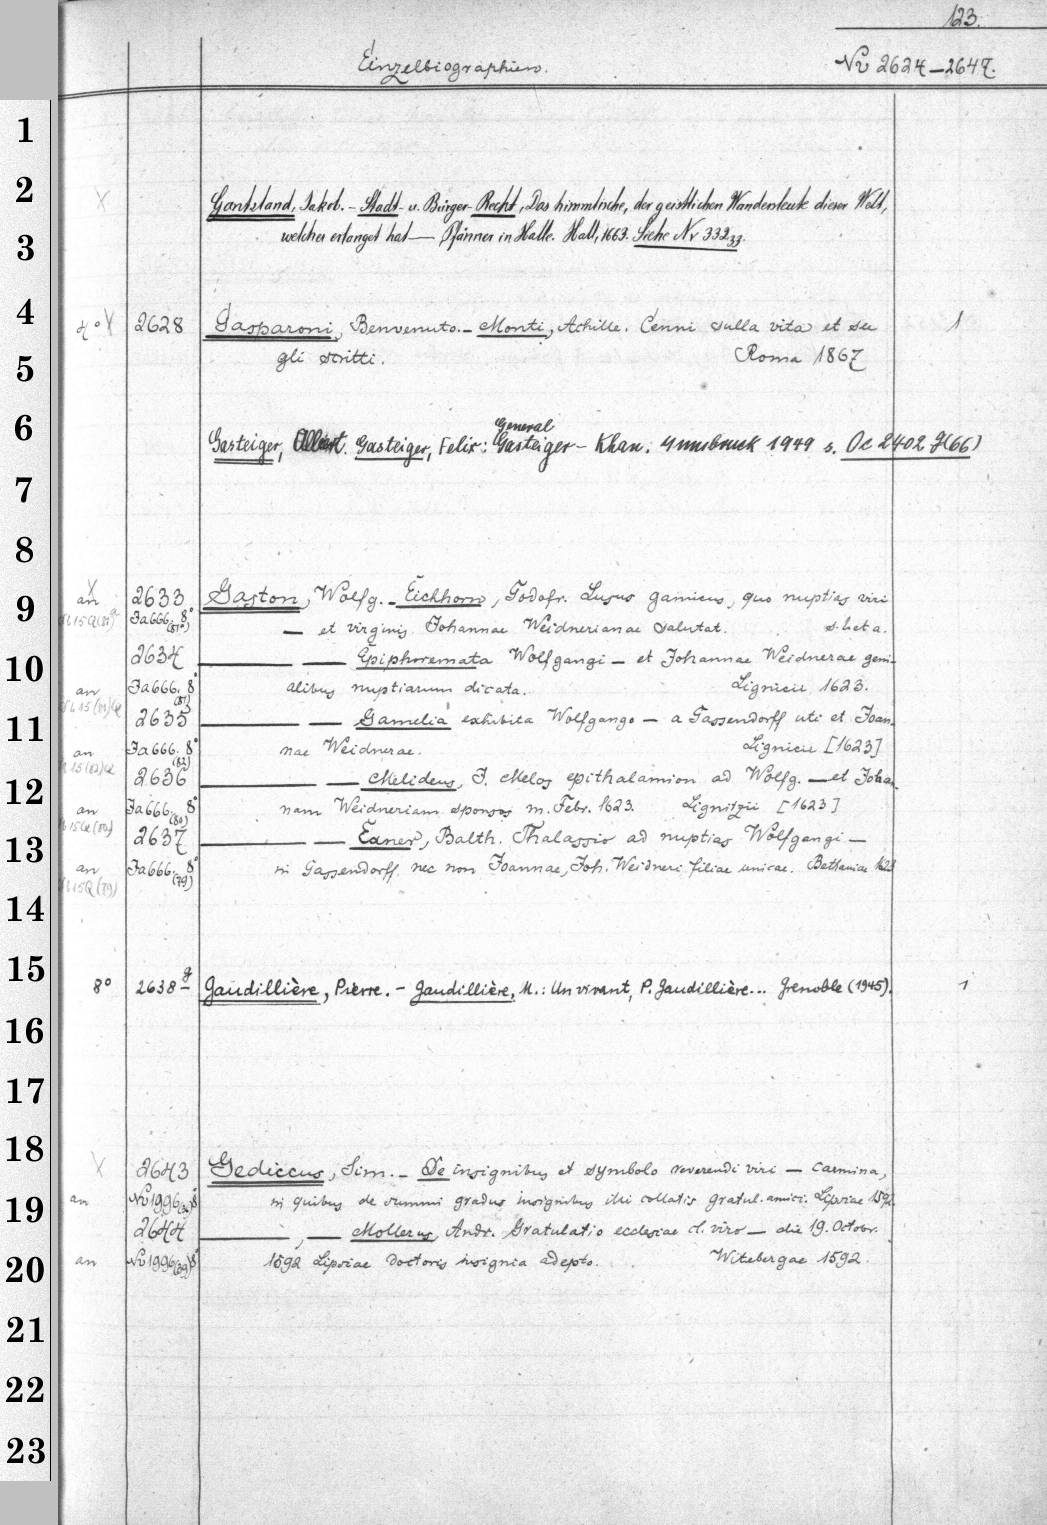 123.
Einzelbiographien. Nv 2624-2647.
1
2
Gantzland, Jakob. - Stadt- u. Bürger-Recht, Das himmlische, der geistlichen Wandersleute dieser Welt,
3 welcher erlanget hat — Pfänner in Halle. Hall, 1663. Siehe Nv 332 33.
4 4° X 2628 Gasparoni, Benvenuto. - Monti, Achille. Cenni sulla vita et su 1
5 gli scritti. Roma 1867
General
6 Gasteiger, Albert. Gasteiger, Felix: Gasteiger - Khan. Innsbruck 1949 s. Oe 2402 J(66)
7
8
X
9 an 2633 Gaston, Wolfg. - Eichhorn, Godofr. Lusus gamicus, quo nuptias viri
Fa 666. 8° (81a) — et virginis Johannae Weidnerianae salutat. s. l. et a.
10 2634 — — Epiphoremata Wolfgangi — et Johannae Weidnerae geni-
an Fa 666. 8° (81) alibus nuptiarum dicata. Lignicii 1623.
11 2635 — — Gamelia exhibita Wolfgango — a Gassendorff uti et Joan-
an Fa 666. 8° (82) nae Weidnerae. Lignicii [1623]
12 2636 — — Melideus, J. Melos epithalamion ad Wolfg. — et Johan-
an Fa 666. 8° (80) nam Weidneriam sponsos m. Febr. 1623. Lignitzii [1623]
13 2637 — — Exner, Balth. Thalassio ad nuptias Wolfgangi —
an Fa 666. 8° (79) in Gassendorff nec non Joannae, Joh. Weidneri filiae unicae. Bethaniae 1623
14
15 8° 2638 g Gaudillière, Pierre. - Gaudillière, M.: Un vivant, P. Gaudillière... Grenoble (1945). 1
16
17
18 X 2643 Gediccus, Sim. - De insignibus et symbolo reverendi viri — carmina,
19 an Nv 1996 8° in quibus de summi gradus insignibus illi collatis gratul. amici. Lipsiae 1592.
2644 —, — Mollerus, Andr. Gratulatio ecclesiae cl. viro — die 19. Octobr.
20 an Nv 1996 (39) 8° 1592 Lipsiae doctoris insignia adepto. Witebergae 1592.
21
22
23